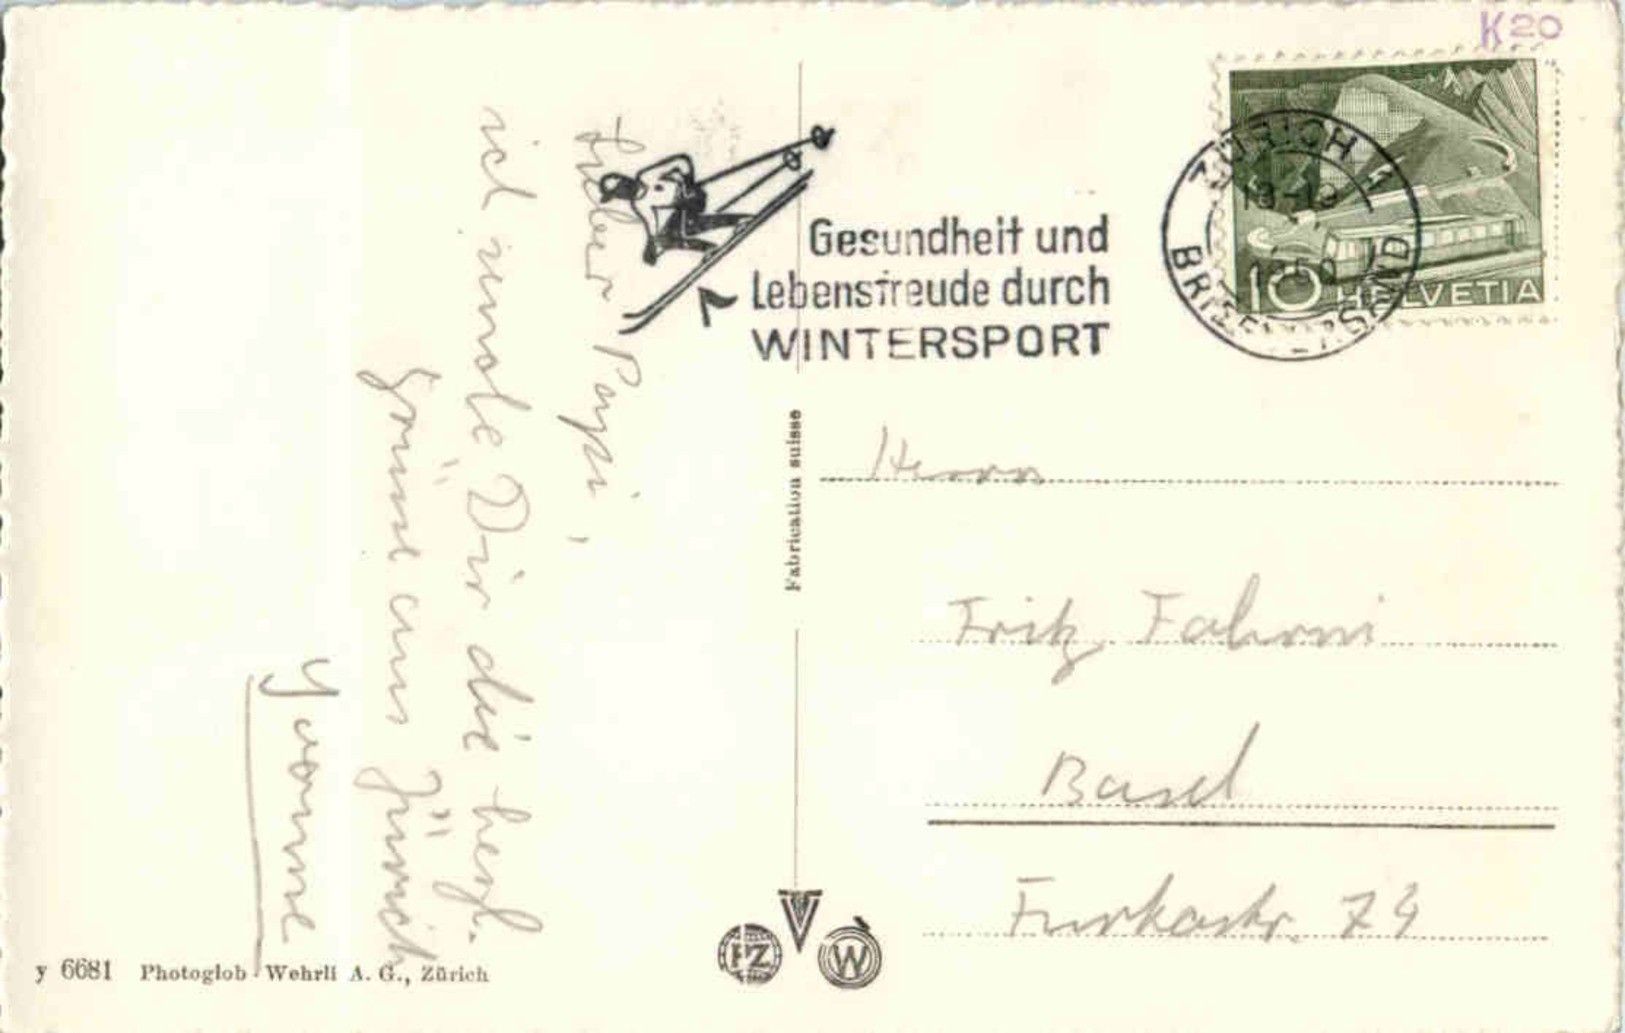 K20
ZÜRICH 1
BRIEFVERSAND
10 HELVETIA
Gesundheit und
Lebensfreude durch
WINTERSPORT
Lieber Papi,
ich sende Dir die herzl.
Grüsse aus Zürich
Yvonne
Fabrication suisse
Herrn
Fritz Fahrni
Basel
Furkastr. 74
PZ
W
y 6681 Photoglob-Wehrli A. G., Zürich